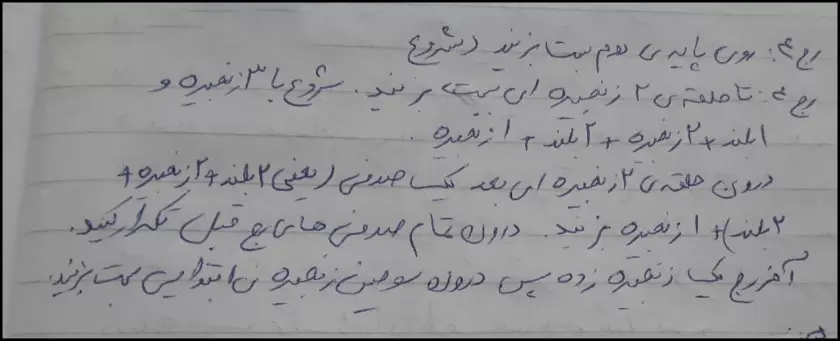 رج ۳: روی پایه ی دوم بست بزنید (شروع
رج ۴: تا حلقه ی ۲ زنجیره ای بست بزنید. شروع با ۳ زنجیره و
۱ بلند + ۲ زنجیره + ۲ بلند + ۱ زنجیره.
درون حلقه ی ۲ زنجیره ای بعد یک صدفی (یعنی ۲ بلند + ۲ زنجیره +
۲ بلند) + ۱ زنجیره بزنید. درون تمام صدفی های رج قبل تکرار کنید.
آخر رج یک زنجیره زده سپس درون سومین زنجیره ی ابتدایی بست بزنید.